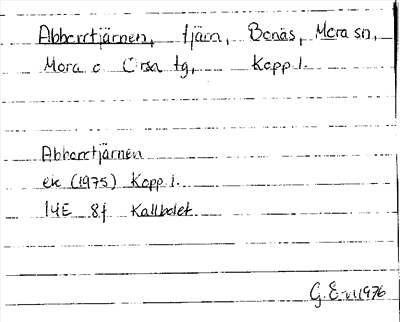 Abborrtjärnen, tjärn, Bonäs, Mora sn,
Mora o Orsa tg, Kopp l.
Abborrtjärnen
ek (1975) Kopp l.
14E 8f Kallholet
G. E. VI 1976